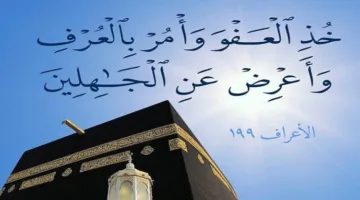 خُذِ الْعَفْوَ وَأْمُرْ بِالْعُرْفِ
وَأَعْرِضْ عَنِ الْجَٰهِلِينَ
الأعراف ١٩٩